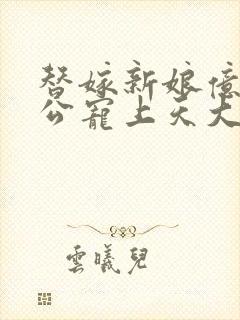 替嫁新娘億
公寵上天大
雲曦兒